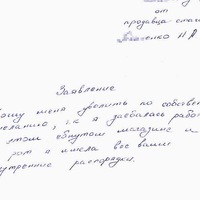 от
продавца
Заявление
прошу меня уволить по собстве
желанию, т.к я заебалась рабо
этом ебнутом магазине и
рот я имела все ваши
внутренние распорядки.